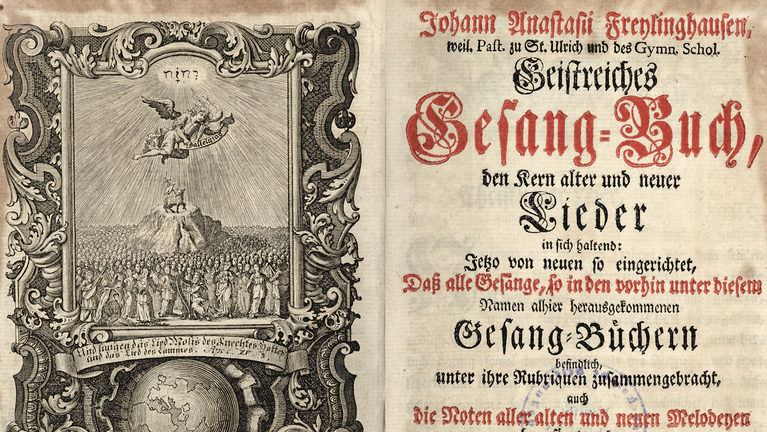 יהוה
Halleluja
Und sungen das Lied Mosis des Knechtes Gottes
und das Lied des Lammes. Apoc. XV. 3.
Johann Anastasii Freylinghausen,
weil. Past. zu St. Ulrich und des Gymn. Schol.
Geistreiches
Gesang-Buch,
den Kern alter und neuer
Lieder
in sich haltend:
Jetzo von neuen so eingerichtet,
Daß alle Gesänge, so in den vorhin unter diesem
Namen alhier herausgekommenen
Gesang-Büchern
befindlich,
unter ihre Rubriquen zusammengebracht,
auch
die Noten aller alten und neuen Melodeyen